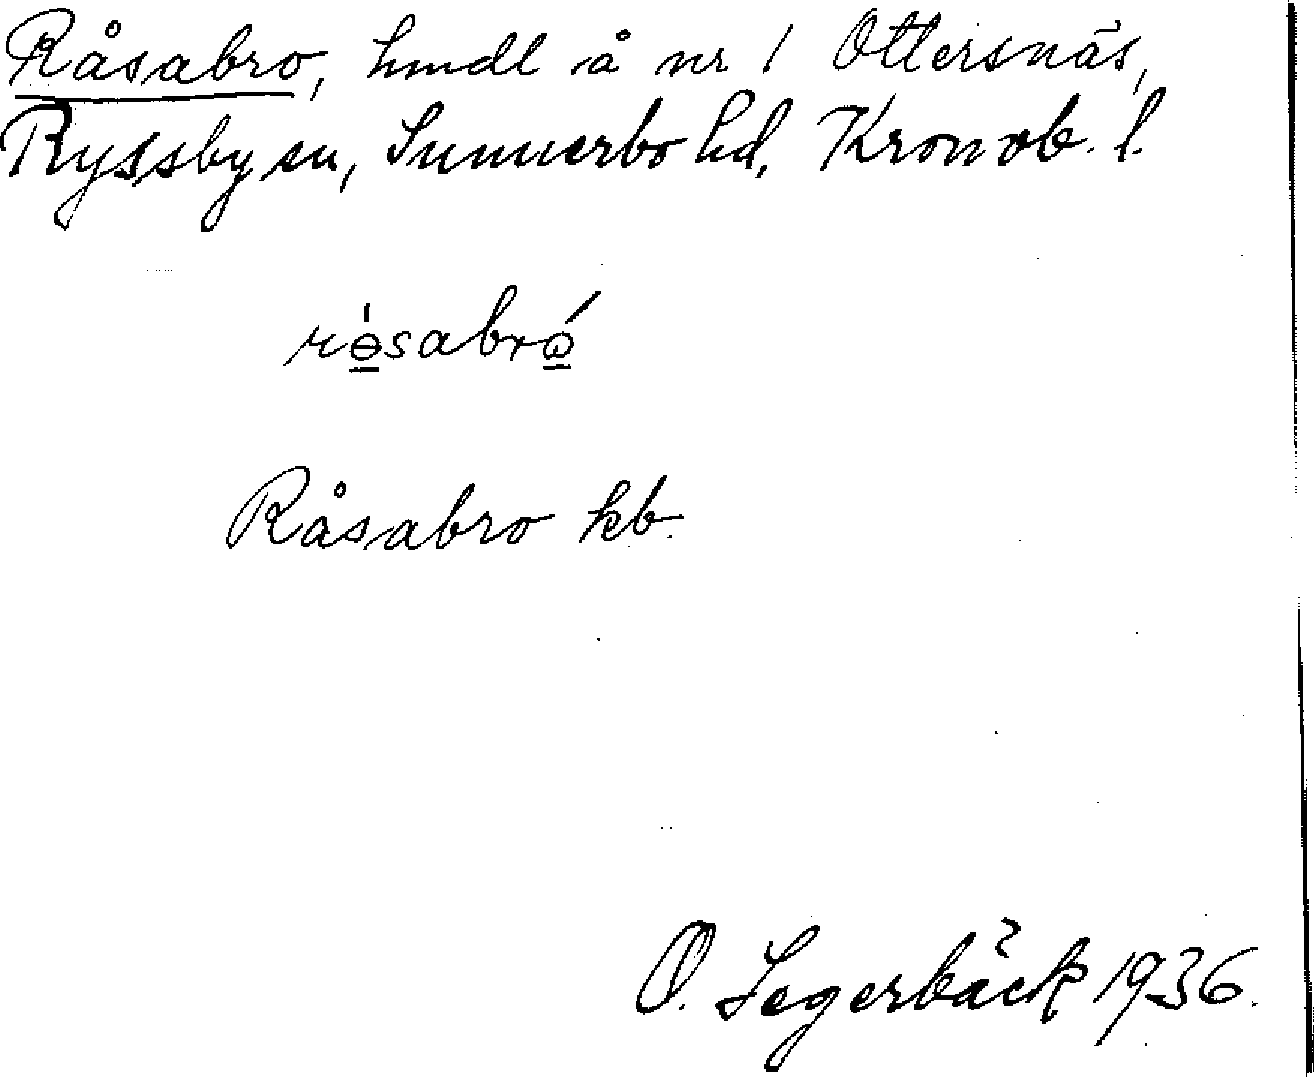 Råsabro, hmdl å nr 1 Ottersnäs,
Ryssby sn, Sunnerbo hd, Kronob. l.
rɵ̲́sabrώ̲
Råsabro kb.
O. Segerbäck 1936.